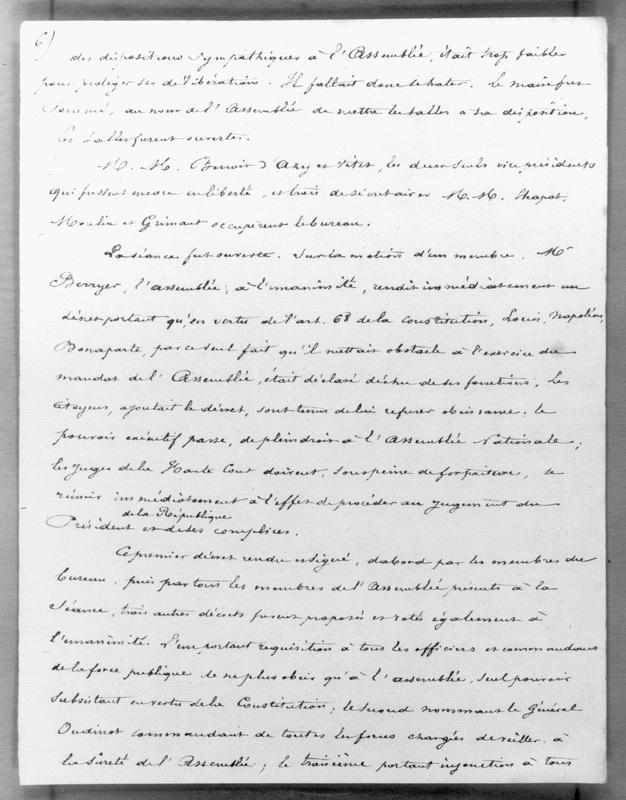 6)
des dispositions sympathiques à l'Assemblée, était trop faible
pour protéger ses délibérations. Il fallait donc se hater. Le maire fut
sommé, au nom de l'Assemblée de mettre les salles à sa disposition,
les salles furent ouvertes.
M. M. Benoir d'Azy et Vitet, les deux seuls vice présidents
qui fussent encore en liberté, et trois des secrétaires M. M. Chapot,
Moulin et Grimaut occupèrent le bureau.
La séance fut ouverte. Sur la motion d'un membre, Mr
Berryer, l'assemblée, à l'unanimité, rendit immédiatement un
décret portant qu'en vertu de l'art. 68 de la constitution, Louis, Napoléon,
Bonaparte, par ce seul fait qu'il mettait obstacle à l'exercice du
mandat de l'Assemblée, était déclaré déchu de ses fonctions. Les
citoyens, ajoutait le décret, sont tenus de lui refuser obeissance. le
pouvoir exécutif passe, de plein droit à l'Assemblée Nationale;
les juges de la Haute Cour doivent, sous peine de forfaiture, se
réunir immédiatement à l'effet de procéder au jugement du
de la République
Président et de ses complices.
Ce premier décret rendu et signé, d'abord par les membres du
bureau, puis par tous les membres de l'Assemblée présents à la
séance, trois autres décrets furent proposés et votés également à
l'unanimité. L'un portant requisition à tous les officiers et commandants
de la force publique de ne plus obeir qu'à l'assemblée, seul pouvoir
subsistant en vertu de la Constitution; le second nommant le Général
Oudinot commandant de toutes les forces chargées de veiller à
la sûreté de l'Assemblée; le troisième portant injonction à tous